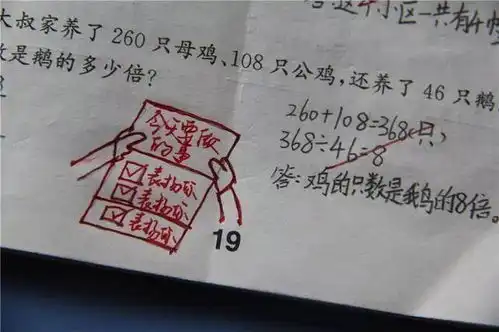 这个小区一共有4幢
大叔家养了260只母鸡、108只公鸡,还养了46只鹅
是鹅的多少倍?
260+108=368(只)
368÷46=8
答:鸡的只数是鹅的8倍。
今天要做
的事
表扬你
表扬你
表扬你
19